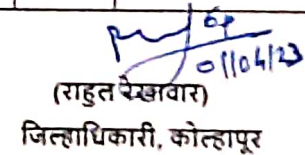 01/04/23
(राहुल रेखावार)
जिल्हाधिकारी, कोल्हापूर